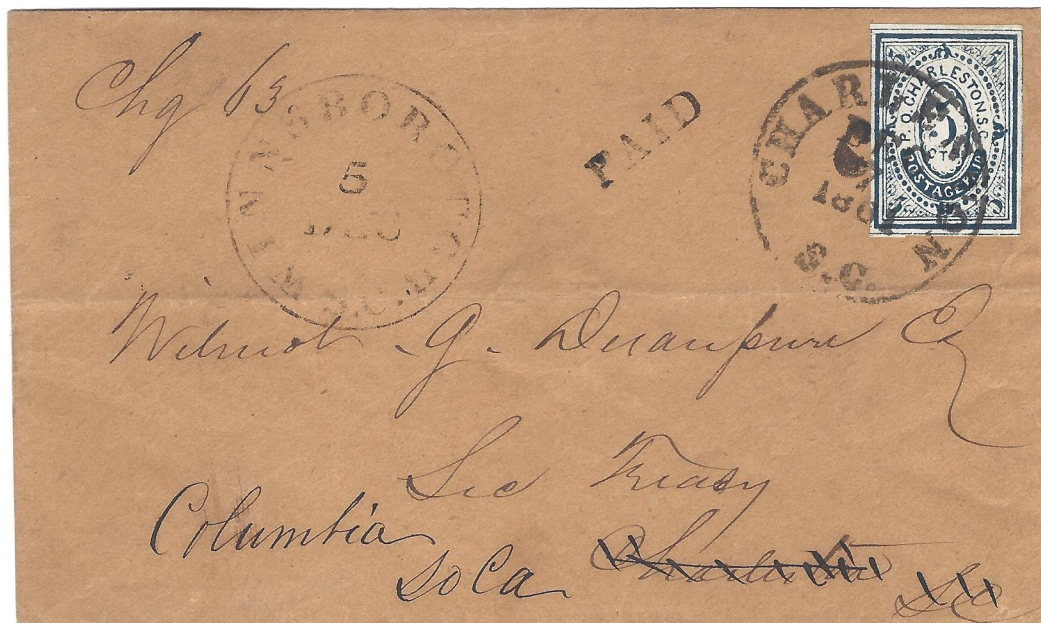 Chg 63.
WINNSBOROUGH
5
DEC
S.C.
PAID
CHARLESTON
DEC
1861
S.C.
5 5
P.O. CHARLESTON S.C.
5
CTS
POSTAGE PAID
Wilmot G. Desaupure Eq
Sec Treasy
Columbia
So Ca
Charleston
So Ca